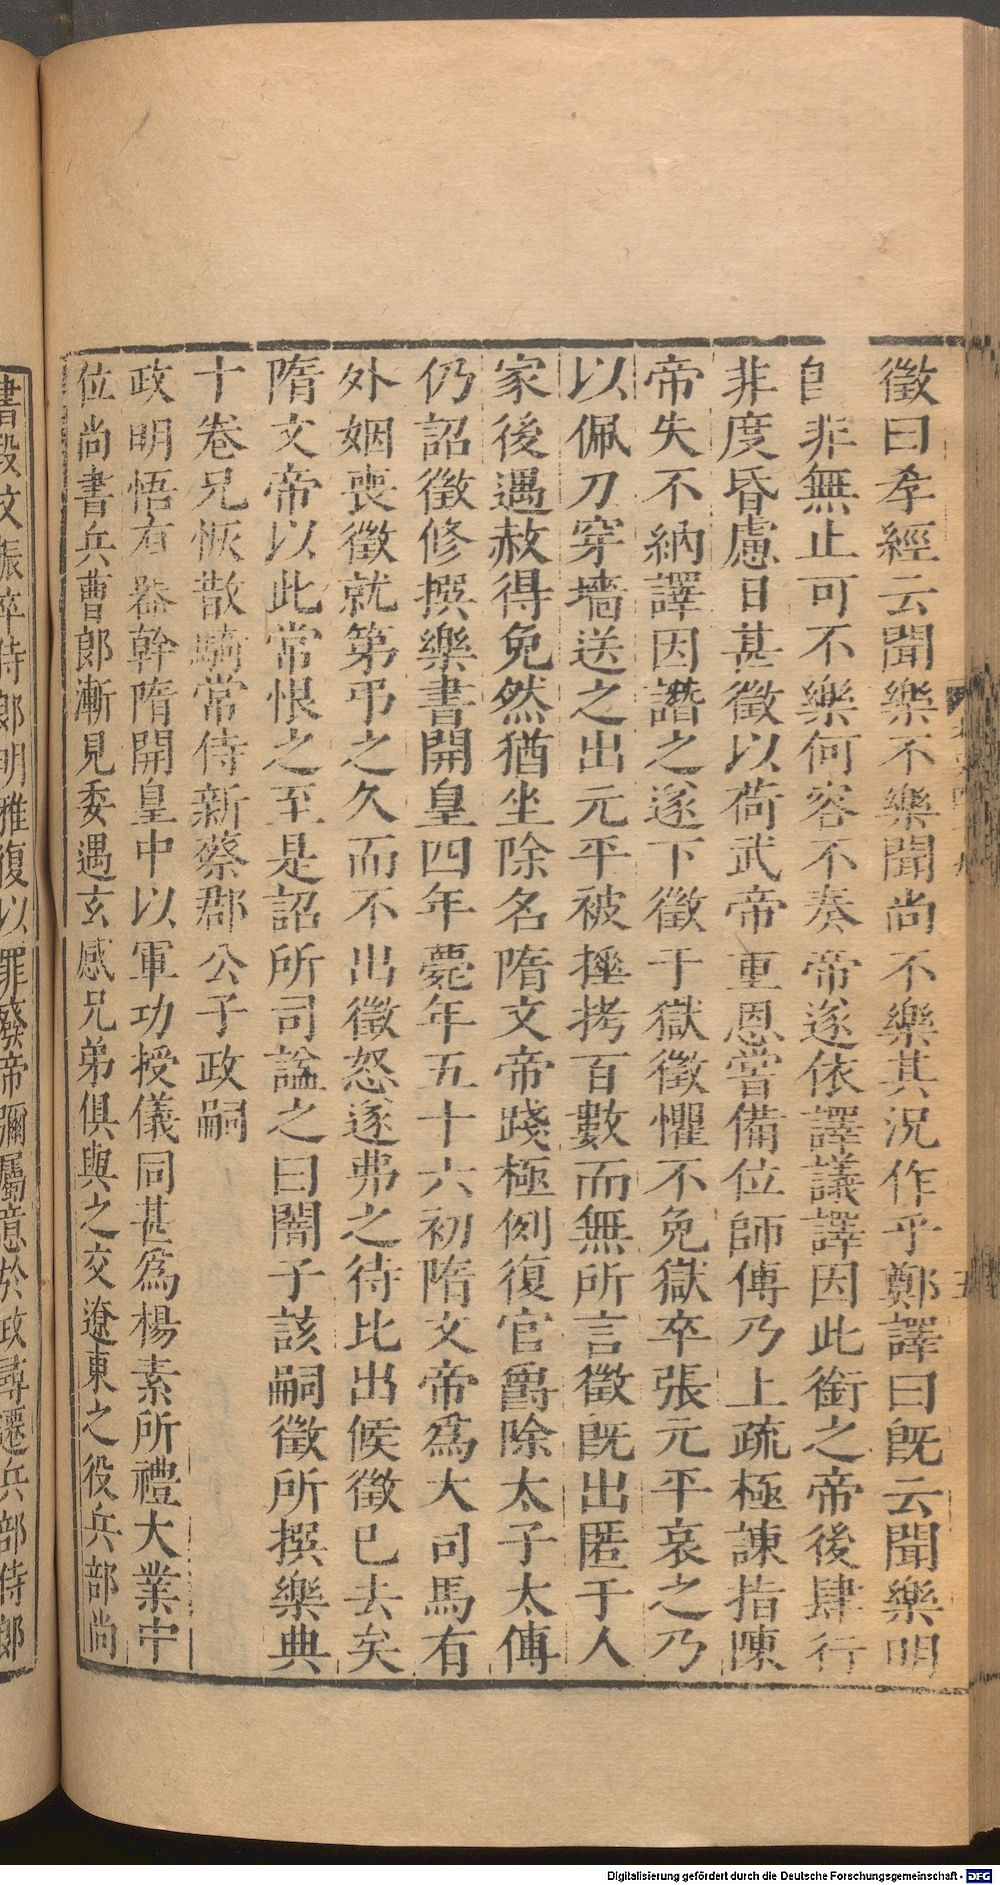 徵曰孝經云聞樂不樂聞尚不樂其況作乎鄭譯曰旣云聞樂明
卽非無止可不樂何容不奏帝遂依譯議譯因此銜之帝後肆行
非度昏虐日甚徵以荷武帝重恩嘗備位師傅乃上疏極諫指陳
帝失不納譯因譖之遂下徵于獄徵懼不免獄卒張元平哀之乃
以佩刀穿墻送之出元平被捶拷百數而無所言徵旣出匿于人
家後遇赦得免然猶坐除名隋文帝踐極例復官爵除太子太傅
仍詔徵修撰樂書開皇四年薨年五十六初隋文帝爲大司馬有
外姻喪徵就第弔之久而不出徵怒遂弗之待比出候徵已去矣
隋文帝以此常恨之至是詔所司諡之曰闇子該嗣徵所撰樂典
十卷兄恢散騎常侍新蔡郡公子政嗣
政明悟有器幹隋開皇中以軍功授儀同甚爲楊素所禮大業中
位尚書兵曹郎漸見委遇玄感兄弟俱與之交遼東之役兵部尚
書段文振卒侍郎明雅復以罪發帝彌屬意於政尋遷兵部侍郎
Digitalisierung gefördert durch die Deutsche Forschungsgemeinschaft - DFG